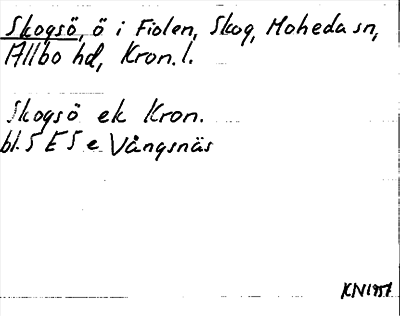 Skogsö, ö i Fiolen, Skog, Moheda sn,
Allbo hd, Kron. l.
Skogsö ek Kron.
bl. 5 E S e Vångsnäs
KN1951